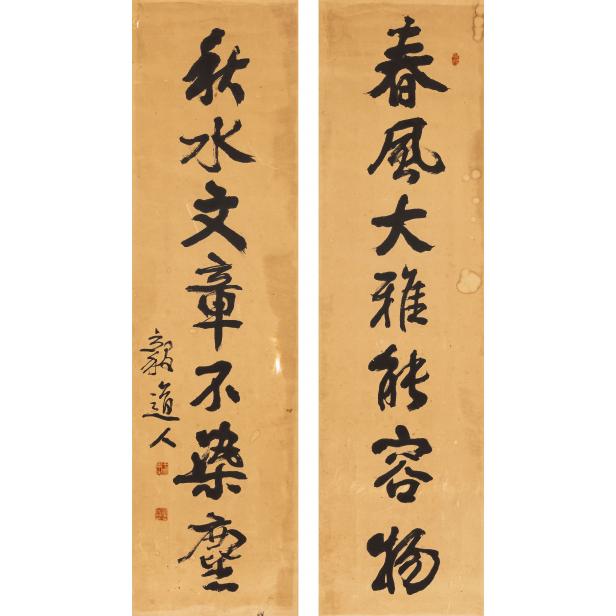 春風大雅能容物
秋水文章不染塵
毅道人